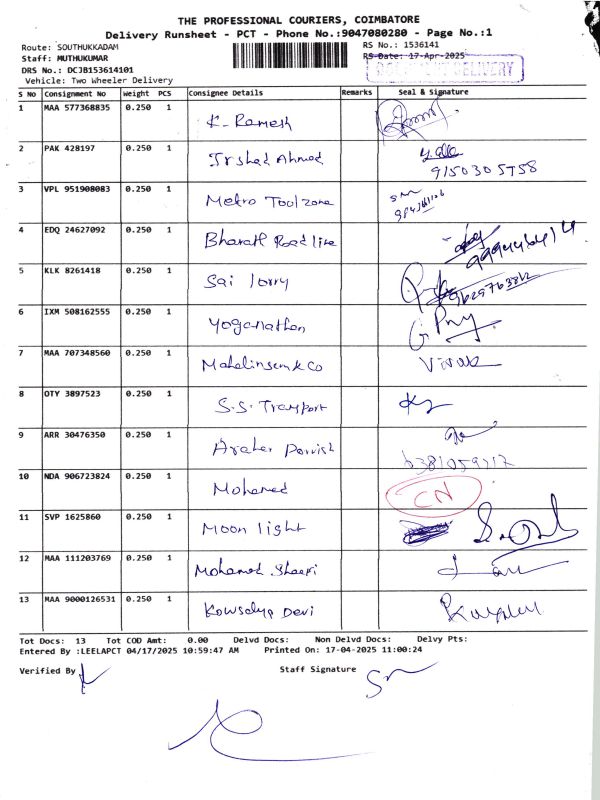 THE PROFESSIONAL COURIERS, COIMBATORE
Delivery Runsheet - PCT - Phone No.:9047080280 - Page No.:1
Route: SOUTHUKKADAM
RS No.: 1536141
Staff: MUTHUKUMAR
RS Date: 17-Apr-2025
DRS No.: DCJB153614101
DELIVERY
Vehicle: Two Wheeler Delivery
S No Consignment No Weight PCS Consignee Details Remarks Seal & Signature
1 MAA 577368835 0.250 1 K. Ramesh
2 PAK 428197 0.250 1 Irshad Ahmed
9150305758
3 VPL 951908083 0.250 1 Metro Toolzone
4 EDQ 24627092 0.250 1 Bharath Roadline
5 KLK 8261418 0.250 1 Sai lorry
6 IXM 508162555 0.250 1 Yoganathan
7 MAA 707348560 0.250 1
8 OTY 3897523 0.250 1 S.S. Transport
9 ARR 30476350 0.250 1
10 NDA 906723824 0.250 1 Mohamed CN
11 SVP 1625860 0.250 1 Moon light
12 MAA 111203769 0.250 1 Mohamed
13 MAA 9000126531 0.250 1 Kowsalya Devi
Tot Docs: 13 Tot COD Amt: 0.00 Delvd Docs: Non Delvd Docs: Delvy Pts:
Entered By :LEELAPCT 04/17/2025 10:59:47 AM Printed On: 17-04-2025 11:00:24
Verified By Staff Signature